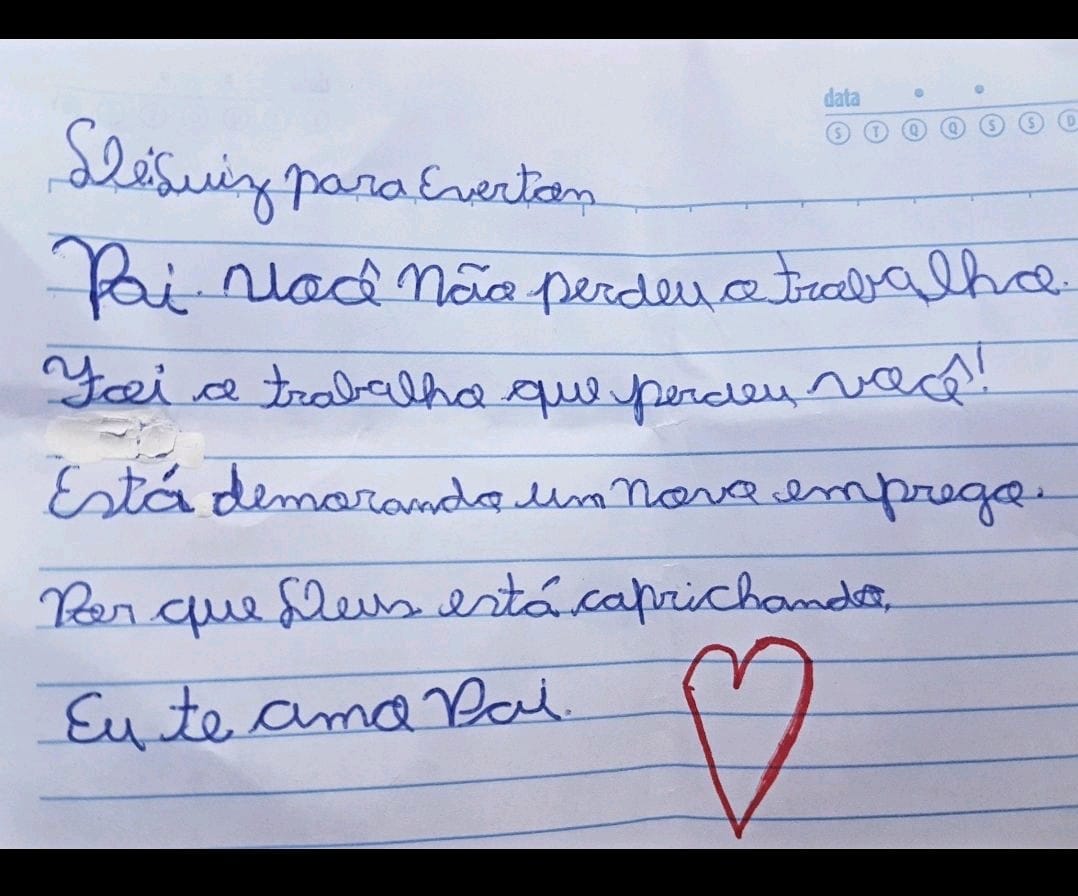 data
S T Q Q S S D
De:Luiz para Everton
Pai. Você não perdeu o trabalho.
Foi o trabalho que perdeu você!
Está demorando um novo emprego.
Por que Deus está caprichando.
Eu te amo Pai.